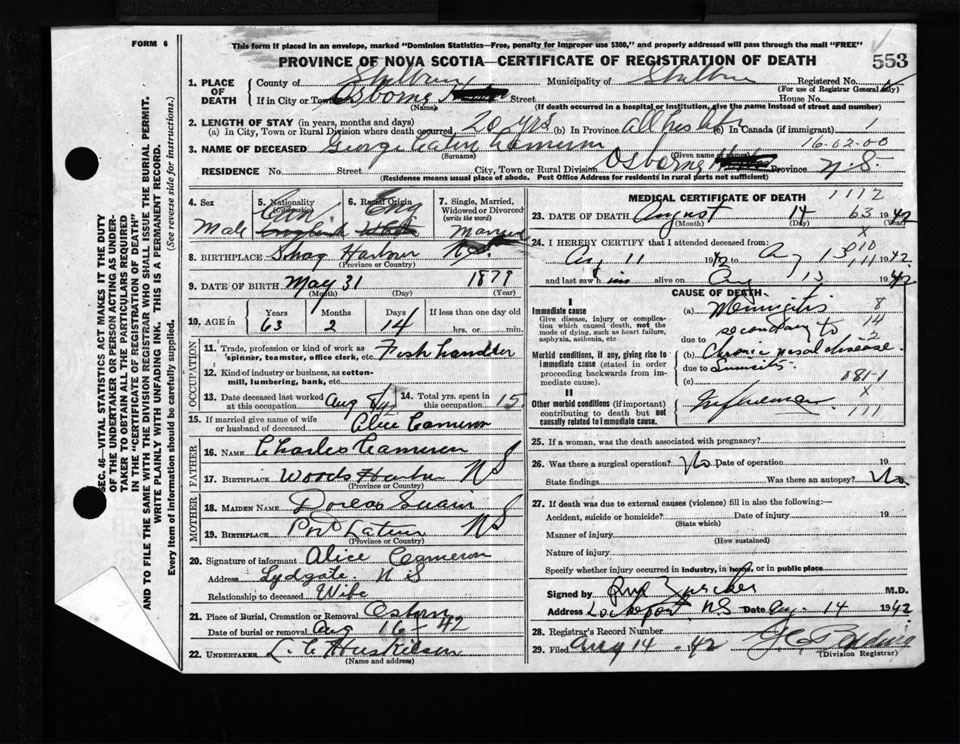 FORM 6
This form if placed in an envelope, marked "Dominion Statistics—Free, penalty for improper use $300," and properly addressed will pass through the mail "FREE"
PROVINCE OF NOVA SCOTIA—CERTIFICATE OF REGISTRATION OF DEATH
553
1. PLACE OF DEATH
County of Shelburne Municipality of Shelburne Registered No.
(For use of Registrar General only)
If in City or Town Osborne Street House No.
(Name) (If death occurred in a hospital or institution, give the name instead of street and number)
2. LENGTH OF STAY (in years, months and days)
(a) In City, Town or Rural Division where death occurred 20 yrs (b) In Province all his life (c) In Canada (if immigrant) 1
16-02-00
3. NAME OF DECEASED George Cameron
(Surname) (Given name or names)
RESIDENCE No. Street City, Town or Rural Division Osborne Province N.S.
(Residence means usual place of abode. Post Office Address for residents in rural parts not sufficient)
4. Sex Male
5. Nationality (Citizenship) Can.
6. Racial Origin Eng
7. Single, Married, Widowed or Divorced (write the word) Married
8. BIRTHPLACE Shag Harbour N.S.
(Province or Country)
9. DATE OF BIRTH May 31 1879
(Month) (Day) (Year)
10. AGE in Years 63 Months 2 Days 14 If less than one day old
hrs. or min.
OCCUPATION
11. Trade, profession or kind of work as spinner, teamster, office clerk, etc. Fish handler
12. Kind of industry or business, as cotton-mill, lumbering, bank, etc.
13. Date deceased last worked at this occupation Aug 8/42
14. Total yrs. spent in this occupation 15.
15. If married give name of wife or husband of deceased Alice Cameron
FATHER
16. NAME Charles Cameron
17. BIRTHPLACE Woods Harbour NS
(Province or Country)
MOTHER
18. MAIDEN NAME Dorcas Swain
19. BIRTHPLACE Port Latour NS
(Province or Country)
20. Signature of informant Alice Cameron
Address Lydgate N S
Relationship to deceased Wife
21. Place of Burial, Cremation or Removal Osborne
Date of burial or removal Aug 16 - 42
22. UNDERTAKER L. C. Huskilson
(Name and address)
MEDICAL CERTIFICATE OF DEATH 1112
23. DATE OF DEATH August 14 63 1942
(Month) (Day) (Year)
24. I HEREBY CERTIFY that I attended deceased from:
Aug 11 1942 to Aug 13 1942
and last saw him alive on Aug 13 1942
CAUSE OF DEATH
I
Immediate cause
Give disease, injury or complication which caused death, not the mode of dying, such as heart failure, asphyxia, asthenia, etc
(a) Meningitis 8
secondary to 14
due to 2
Morbid conditions, if any, giving rise to immediate cause (stated in order proceeding backwards from immediate cause)
(b) Chronic nasal disease.
due to Sinusitis.
(c) 081-1
II
Other morbid conditions (if important) contributing to death but not causally related to immediate cause.
X
111
25. If a woman, was the death associated with pregnancy?
26. Was there a surgical operation? No Date of operation 19
State findings Was there an autopsy? No
27. If death was due to external causes (violence) fill in also the following:—
Accident, suicide or homicide? Date of injury 19
(State which)
Manner of injury
(How sustained)
Nature of injury
Specify whether injury occurred in industry, in home, or in public place
Signed by M.D.
Address Lockeport, NS Date Aug - 14 1942
28. Registrar's Record Number
29. Filed Aug 14 - 1942
(Division Registrar)
SEC. 46—VITAL STATISTICS ACT MAKES IT THE DUTY
OF THE UNDERTAKER OR PERSON ACTING AS UNDER-
TAKER TO OBTAIN ALL THE PARTICULARS REQUIRED
IN THE "CERTIFICATE OF REGISTRATION OF DEATH"
AND TO FILE THE SAME WITH THE DIVISION REGISTRAR WHO SHALL ISSUE THE BURIAL PERMIT.
WRITE PLAINLY WITH UNFADING INK. THIS IS A PERMANENT RECORD.
Every item of information should be carefully supplied. (See reverse side for instructions.)